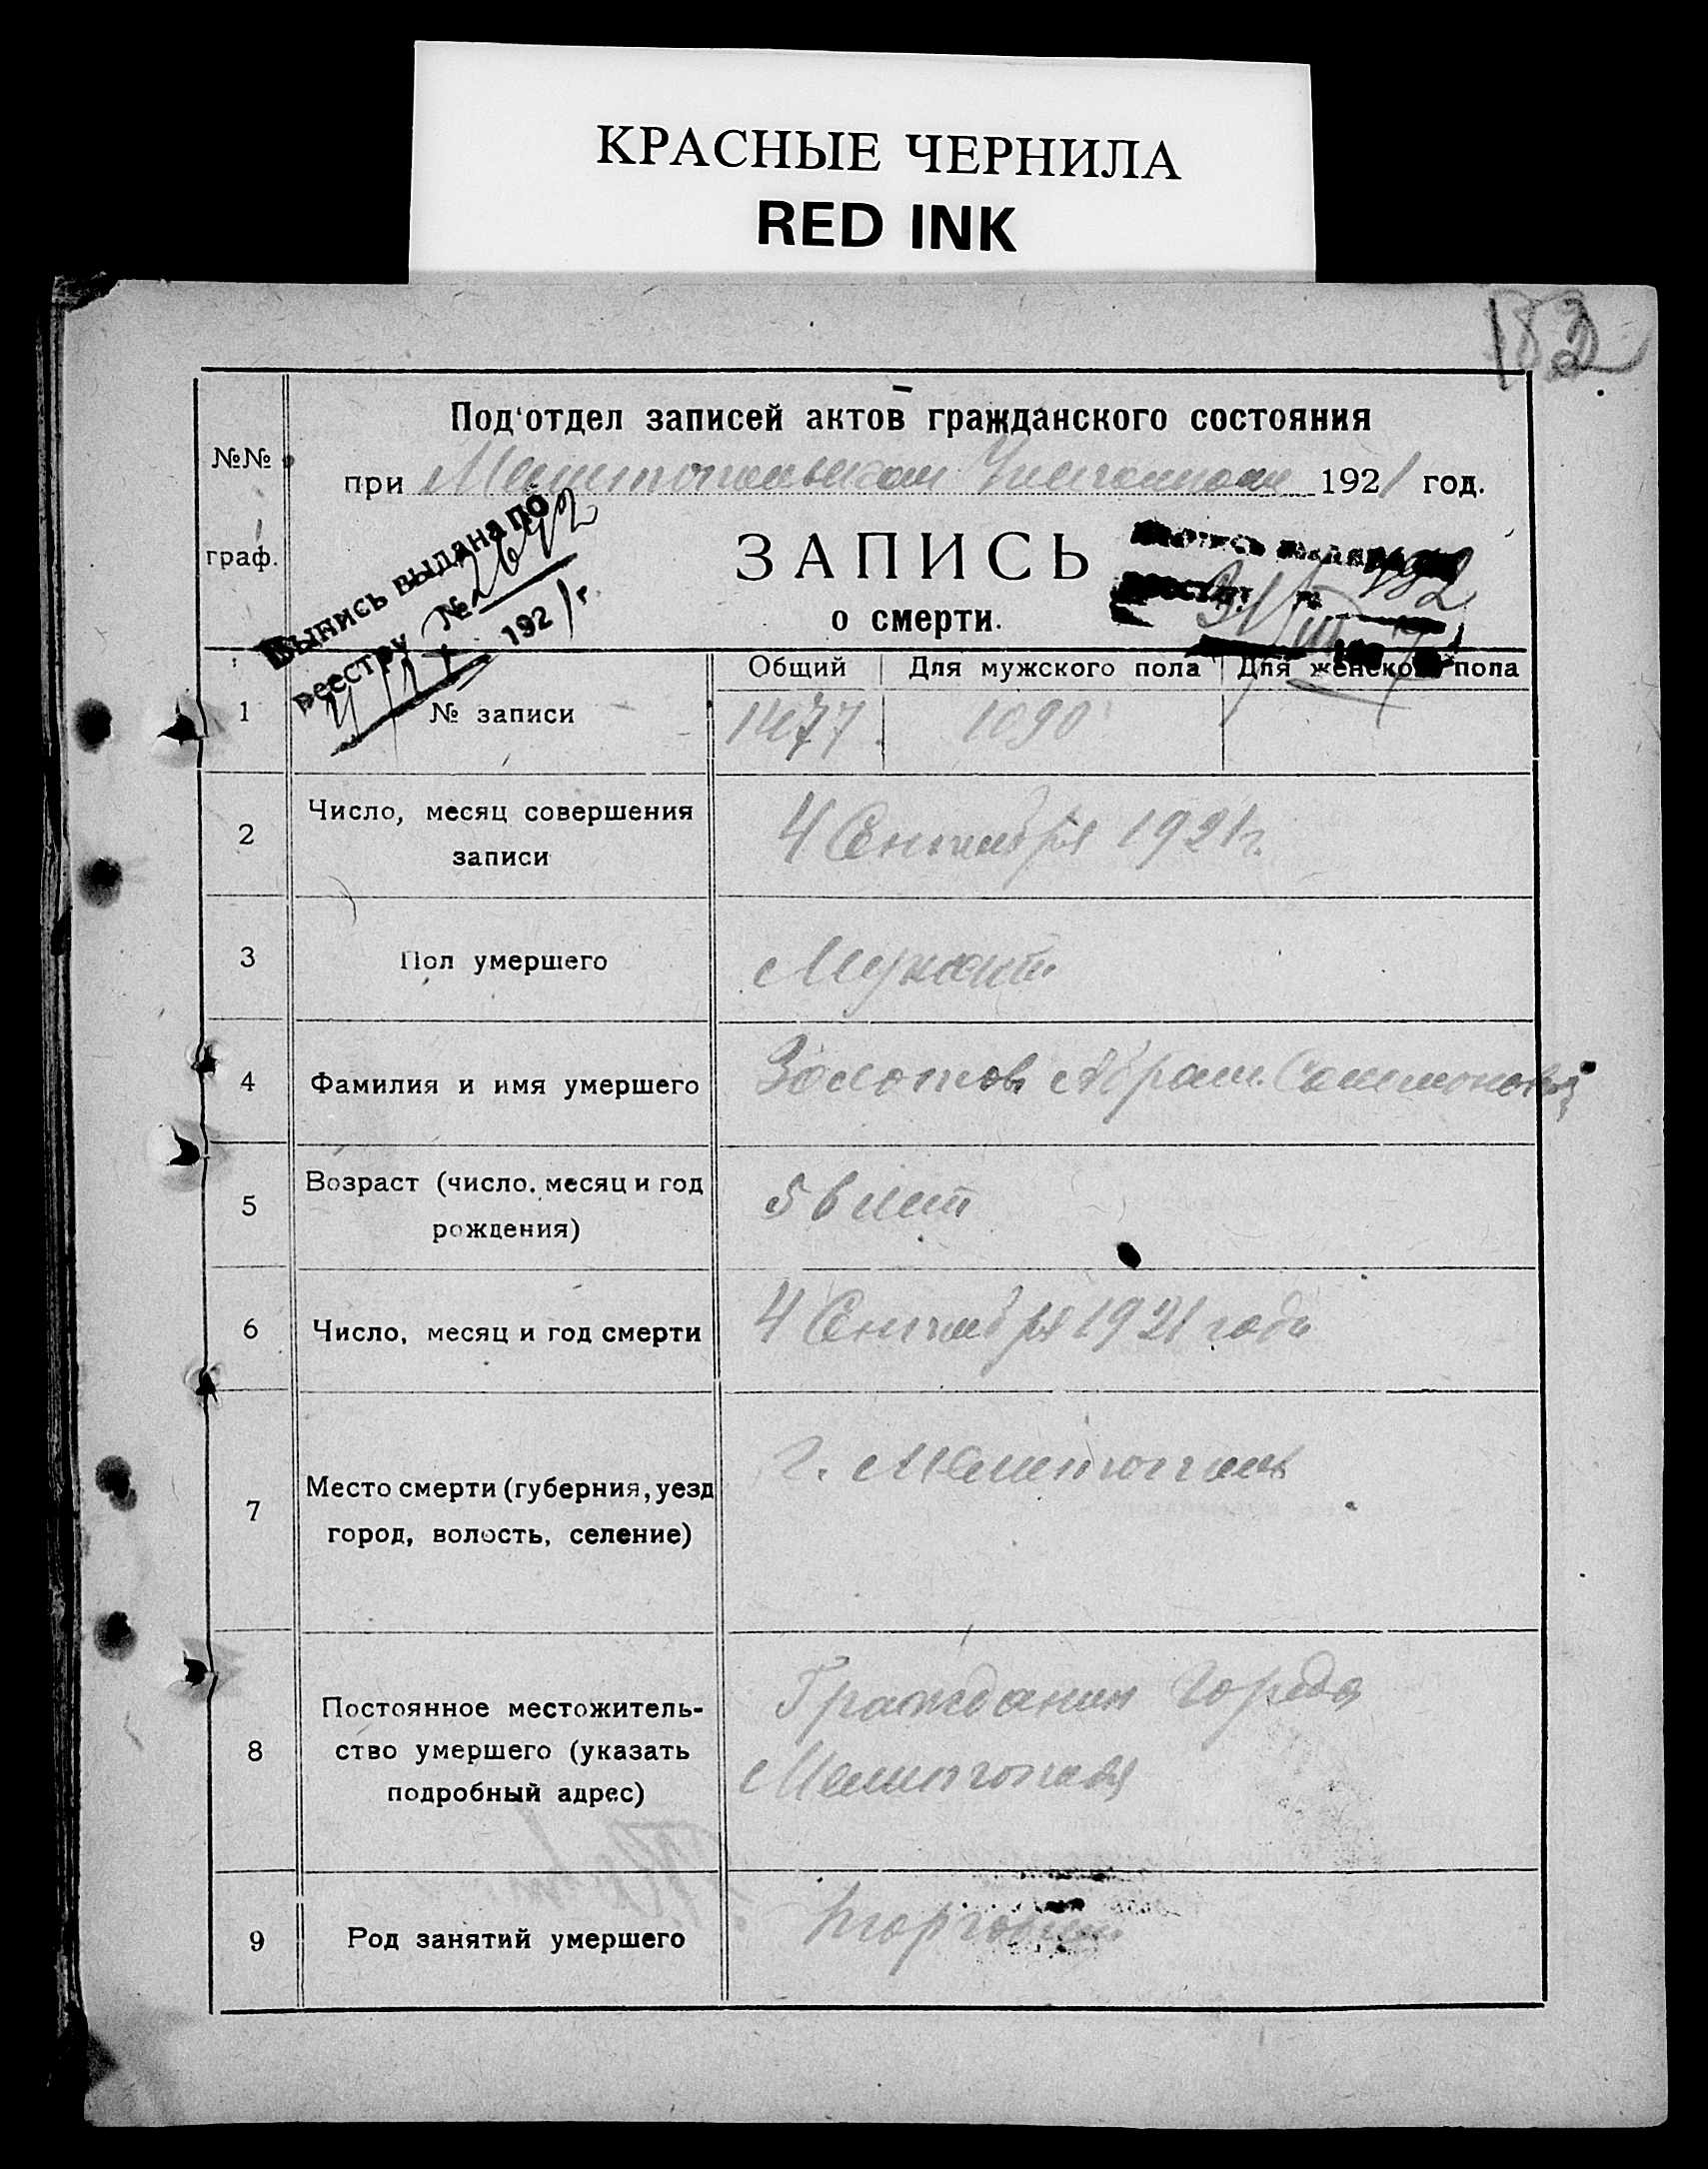 КРАСНЫЕ ЧЕРНИЛА
RED INK
182
Под'отдел записей актов гражданского состояния
№№ граф.
при Мелитопольском 1921 год.
ЗАПИСЬ
о смерти.
Выпись выдана по
реестру №
1921 г.
Общий Для мужского пола Для женского пола
1 № записи 1477 1090
2 Число, месяц совершения
записи
4 Сентября 1921 г.
3 Пол умершего Мужской
4 Фамилия и имя умершего Золотов Абрам Соломонович
5 Возраст (число, месяц и год
рождения)
56 лет
6 Число, месяц и год смерти 4 Сентября 1921 года
7 Место смерти (губерния, уезд
город, волость, селение)
г. Мелитополь
8 Постоянное местожитель-
ство умершего (указать
подробный адрес)
Гражданин города
Мелитополя
9 Род занятий умершего торговец